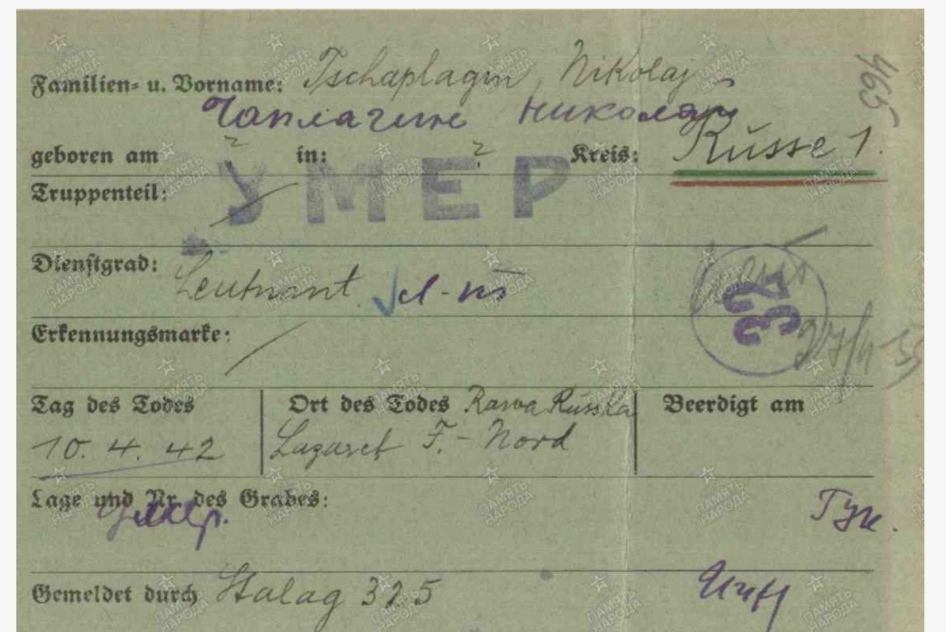 465
Familien- u. Vorname: Tschaplagin, Nikolaj
Чаплагин Николай
geboren am ? in: ? Kreis: Russe 1.
Truppenteil:
УМЕР
Dienstgrad: Leutnant л-т
32
Erkennungsmarke:
Tag des Todes Ort des Todes Rawa Russka Beerdigt am
10. 4. 42 Lazaret F.- Nord
Lage und Nr. des Grabes:
Умер.
Gemeldet durch Stalag 325
ПАМЯТЬ НАРОДА